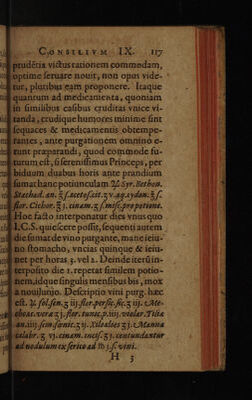 CONSILIVM IX. 117
prudētia victus rationem commedam,
optime seruare nouit, non opus vide-
tur, pluribus eam proponere. Itaque
quantum ad medicamenta, quoniam
in similibus casibus cruditas vnice vi-
tanda, crudique humores minime sint
sequaces & medicamentis obtempe-
rantes, ante purgationem omnino e-
runt præparandi, quod commode fu-
turum est, si serenissimus Princeps, per
biduum duabus horis ante prandium
sumat hanc potiunculam ℞ Syr. Bethon.
Stæchad. an.
flor. Cichor. cinam. misc. pro potione.
Hoc facto interponatur dies vnus quo
I. C. quiescere possit, sequenti autem
die sumat de vino purgante, mane ieiu-
no stomacho, vncias quinque & ieiu-
net per horas 3. vel 2. Deinde iterū in-
terposito die 1. repetat similem potio-
nem, idque singulis mensibus bis, mox
a nouilunio. Descriptio vini purg. hæc
est. ℞. fol. sen. ʒ iij. flor. persic. sic. ʒ iij. Me-
choac. veræ ʒ j. flor. tunic. p. iiij. violar. Tita
an. iiij. sem. sanic. ʒ ij. Xiloaloes ʒ j. Manna
calabr. ʒ vj. cinam. incis. ʒ j. contundantur
ad nodulum ex serico ad vini.
H 3